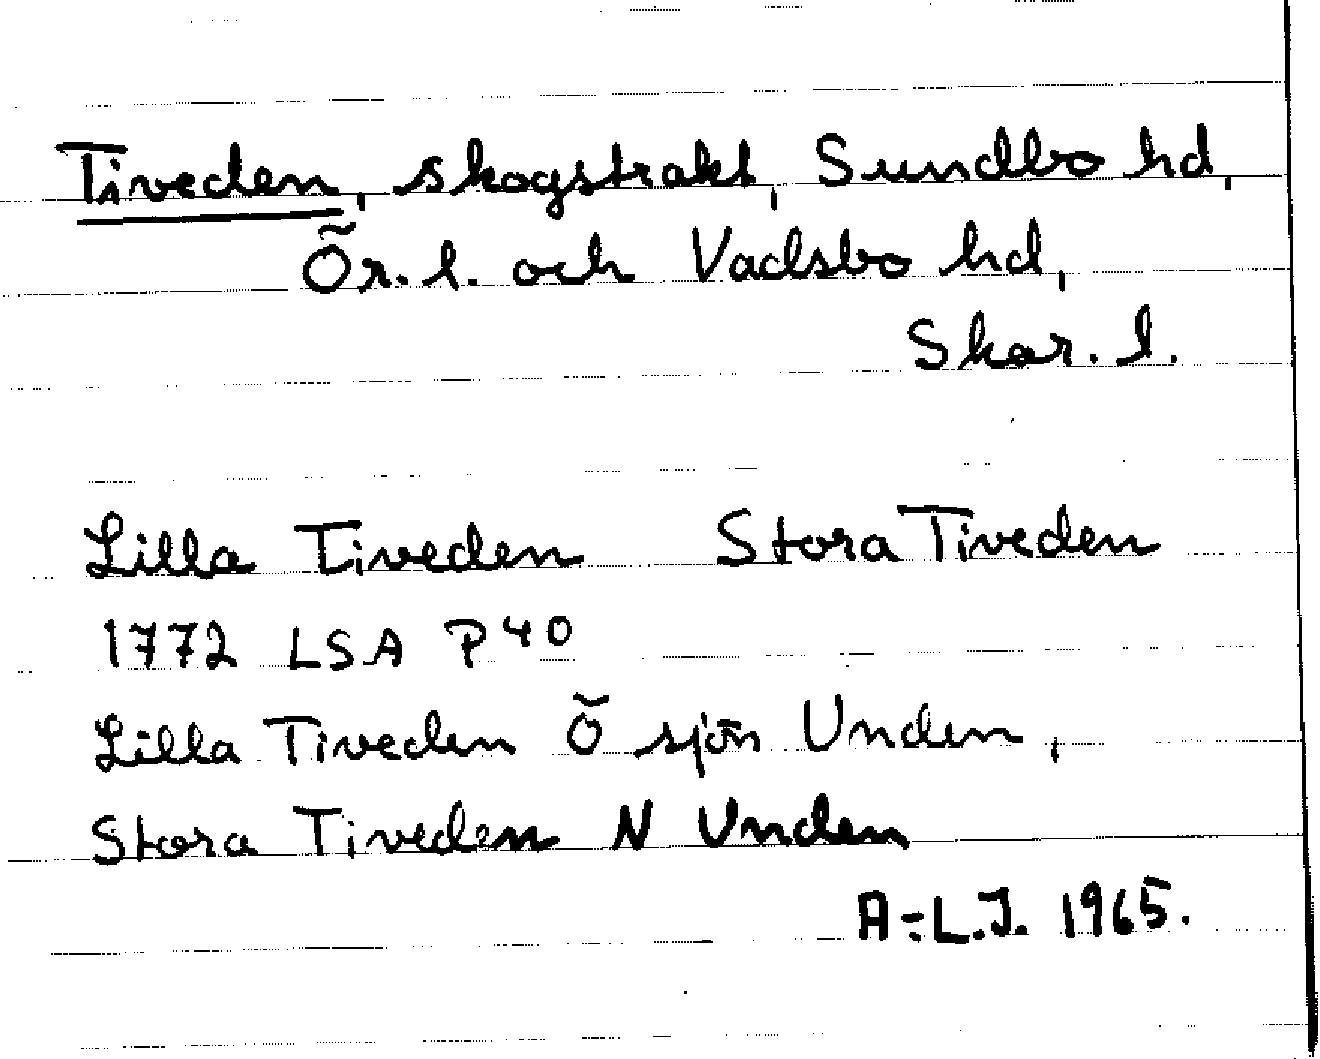 Tiveden, skogstrakt, Sundbo hd,
Ör. l. och Vadsbo hd,
Skar. l.
Lilla Tiveden Stora Tiveden
1772 LSA P40
Lilla Tiveden Ö sjön Unden,
Stora Tiveden N Unden
A-L.J. 1965.